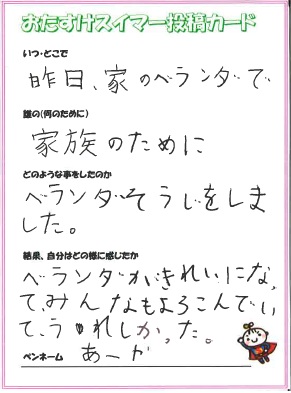 おたすけスイマー投稿カード
いつ・どこで
昨日、家のベランダで
誰の(何のために)
家族のために
どのような事をしたのか
ベランダそうじをしま
した。
結果、自分はどの様に感じたか
ベランダがきれいになっ
て、みんなもよろこんでい
て、うれしかった。
ペンネーム あーか